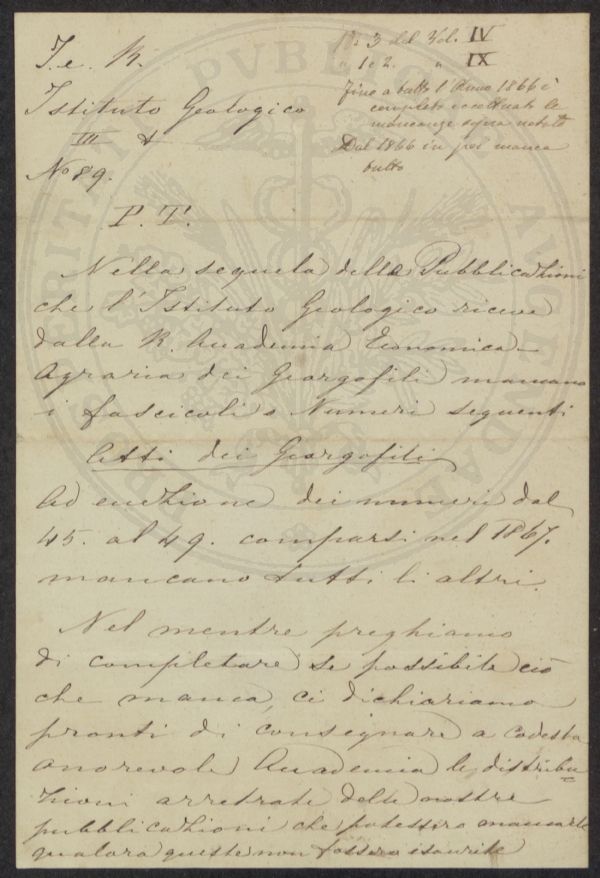 I. e. R.
Istituto Geologico
III &
No 89.
No 3 del Vol. IV
" 1 e 2. " IX
fino a tutto l'Anno 1866 è
completo eccettuato le
mancanze sopra notate
Dal 1866 in poi manca
tutto
P. T.
Nella sequela delle Pubblicazioni
che l'Istituto Geologico riceve
dalla R. Accademia Economica
Agraria dei Georgofili mancano
i fascicoli o Numeri seguenti
Atti dei Georgofili
Ad eccezione dei numeri dal
45. al 49. comparsi nel 1867.
mancano tutti li altri.
Nel mentre preghiamo
di completare se possibile ciò
che manca, ci dichiariamo
pronti di consegnare a codesta
onorevole Accademia le distribu
zioni arretrate delle nostre
pubblicazioni che potessero mancarle
qualora queste non fossero esaurite
PROSPERITATI PVBLICAE AVGENDAE